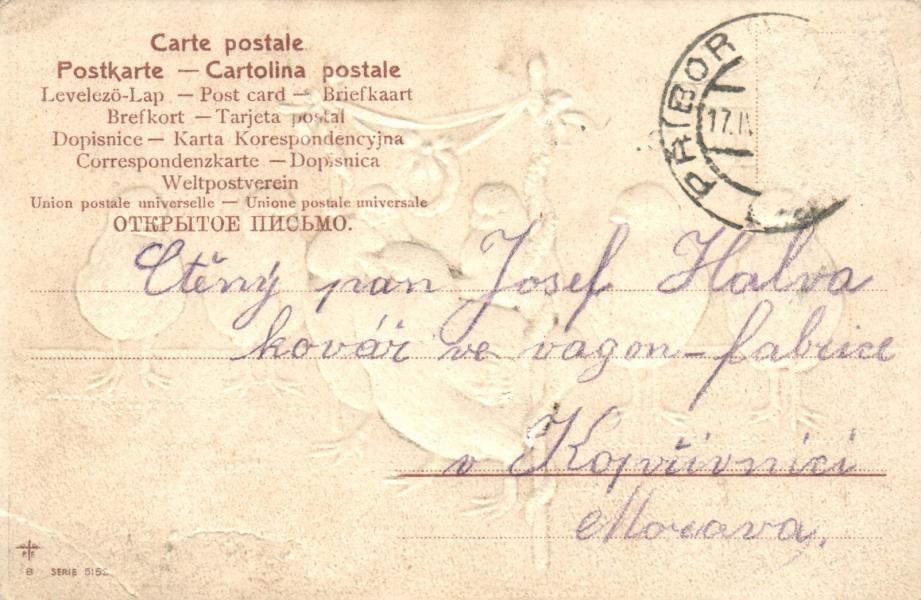 Carte postale
Postkarte — Cartolina postale
Levelezö-Lap — Post card — Briefkaart
Brefkort — Tarjeta postal
Dopisnice — Karta Korespondencyjna
Correspondenzkarte — Dopisnica
Weltpostverein
Union postale universelle — Unione postale universale
ОТКРЫТОЕ ПИСЬМО.
PŘÍBOR
17.
Ctěný pan Josef Halva
kovář ve vagon-fabrice
v Kopřivnici
Morava.
B SERIE 5152